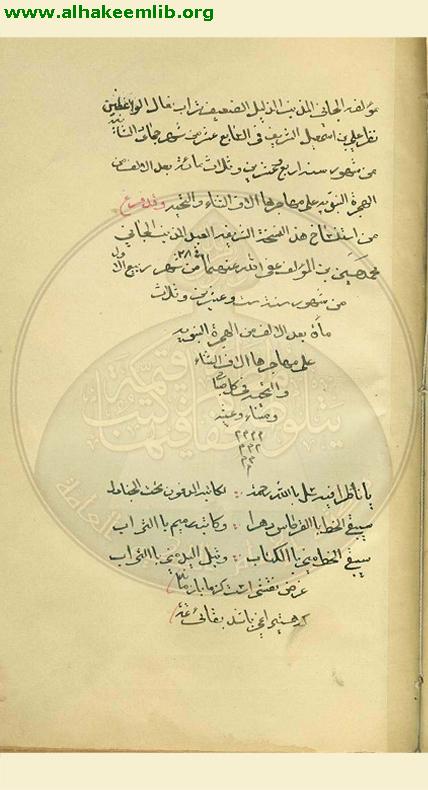 www.alhakeemlib.org
مؤلفه الجاني المذنب الذليل الضعيف تراب نعال الواعظين
نظر علي بن اسمعيل الشريف في السابع عشر من شهر جمادى الثانية
من شهور سنه اربع وعشرين وثلاث مائة بعد الالف من
الهجرة النبويه على مهاجرها الاف الثناء والتحيه وقد فرغ
من استنساخ هذه النسخة الشريفه العبد المذنب الجاني
محمد حسين بن المؤلف عفى الله عنهما من شهر ربيع الاول
من شهور سنه ست وعشرين وثلاث
مأة بعد الالف من الهجرة النبويه
على مهاجرها الاف الثناء
والتحيه في كل صباح
ومساء وعشيه
يا ناظرا فيه سل بالله رحمة :: لكاتبه المدفون تحت الجنادل
سيبقى الخط بالقرطاس دهرا :: وكاتبه رميم بالتراب
سيبقى الخط مني بالكتاب :: وتبلى اليد مني بالتراب
غرض نقشي است كزما باز ماند
كه هستى را نمي باشد بقائى